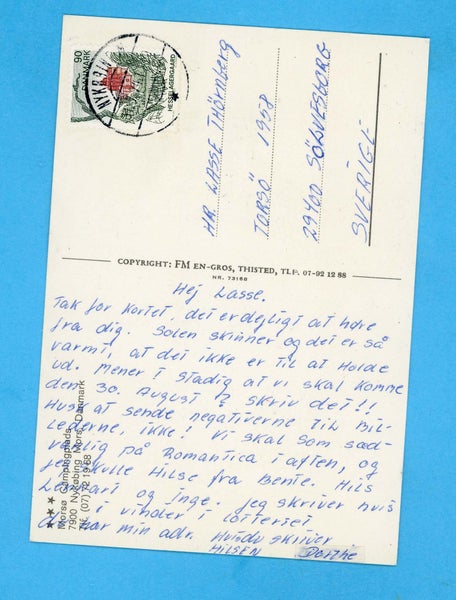 90
DANMARK
HESSELAGERGAARD
NYKØBING
HR. LASSE THÖRNBERG
TORSÖ 1958
29400 SÖLVESBORG
SVERIGE
COPYRIGHT: FM EN-GROS, THISTED, TLF. 07-92 12 88
NR. 73168
Hej Lasse.
Tak for kortet, det er dejligt at høre
fra dig. Solen skinner og det er så
varmt, at det ikke er til at holde
ud. Mener i stadig at vi skal komme
den 30. August? skriv det!!
Husk at sende negativerne til bil-
lederne, ikke! Vi skal som sæd-
vanlig på Romantica i aften, og
jeg skulle hilse fra Bente. Hils
Lennart og Inge. Jeg skriver hvis
i vinder i lotteriet
har min adr. Husdu skriver
HILSEN Dorthe
★★★
Morsø Campingplads
7900 Nykøbing Mors, Danmark
Tlf. (07) 72 19 68